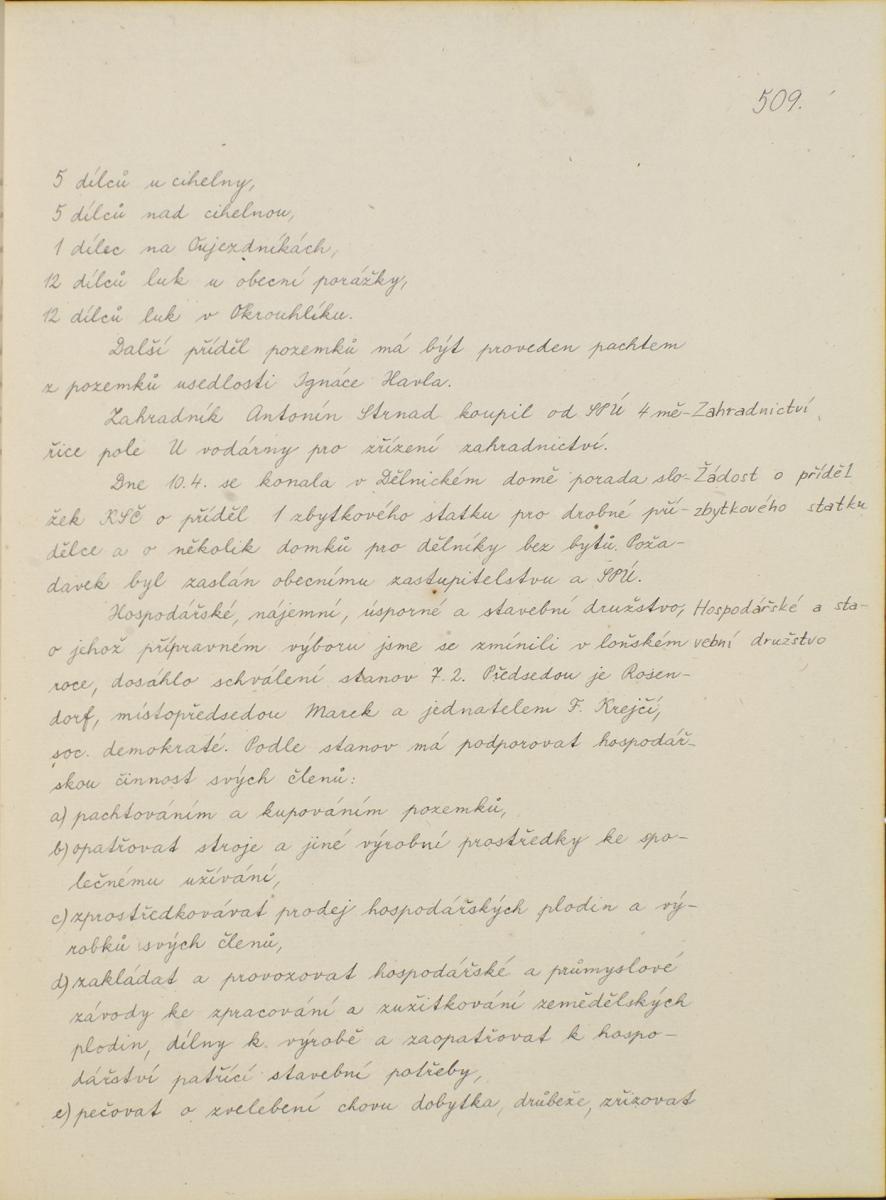 509.
5 dílců u cihelny,
5 dílců nad cihelnou,
1 dílec na Oujezdníkách,
12 dílců luk u obecní porážky,
12 dílců luk v Okrouhlíku.
Další příděl pozemků má být proveden pachtem
z pozemků usedlosti Ignáce Havla.
Zahradník Antonín Strnad koupil od SPÚ 4 mě- Zahradnictví
řice pole U vodárny pro zřízení zahradnictví.
Dne 10.4. se konala v Dělnickém domě porada slo- Žádost o příděl
žek KSČ o příděl 1 zbytkového statku pro drobné při- zbytkového statku
dělce a o několik domků pro dělníky bez bytů. Poža-
davek byl zaslán obecnímu zastupitelstvu a SPÚ.
Hospodářské, nájemní, úsporné a stavební družstvo, Hospodářské a sta-
o jehož přípravném výboru jsme se zmínili v loňském vební družstvo
roce, dosáhlo schválení stanov 7.2. Předsedou je Rosen-
dorf, místopředsedou Marek a jednatelem F. Krejčí,
soc. demokraté. Podle stanov má podporovat hospodář-
skou činnost svých členů:
a) pachtováním a kupováním pozemků,
b) opatřovat stroje a jiné výrobní prostředky ke spo-
lečnému užívání,
c) zprostředkovávat prodej hospodářských plodin a vý-
robků svých členů,
d) zakládat a provozovat hospodářské a průmyslové
závody ke zpracování a zužitkování zemědělských
plodin, dílny k výrobě a zaopatřovat k hospo-
dářství patřící stavební potřeby,
e) pečovat o zvelebení chovu dobytka, drůbeže, zřizovat